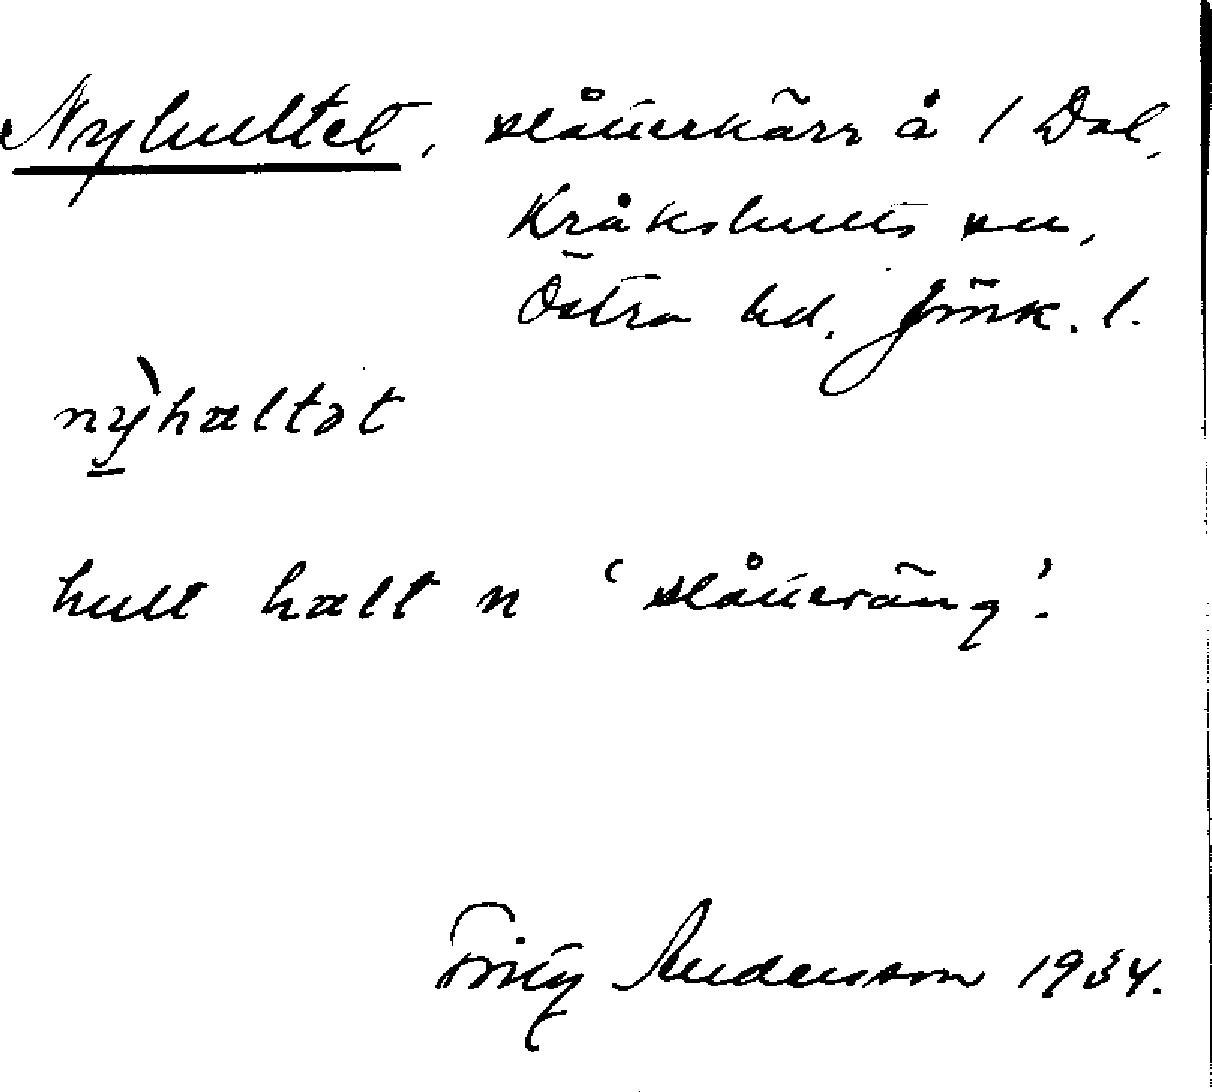 Nyhultet, slåtterkärr å 1 Dal,
Kråkshults sn,
Östra hd, Jönk. l.
nỳhæltət
hult hælt n 'slåtteräng'.
Fritz Andersson 1934.